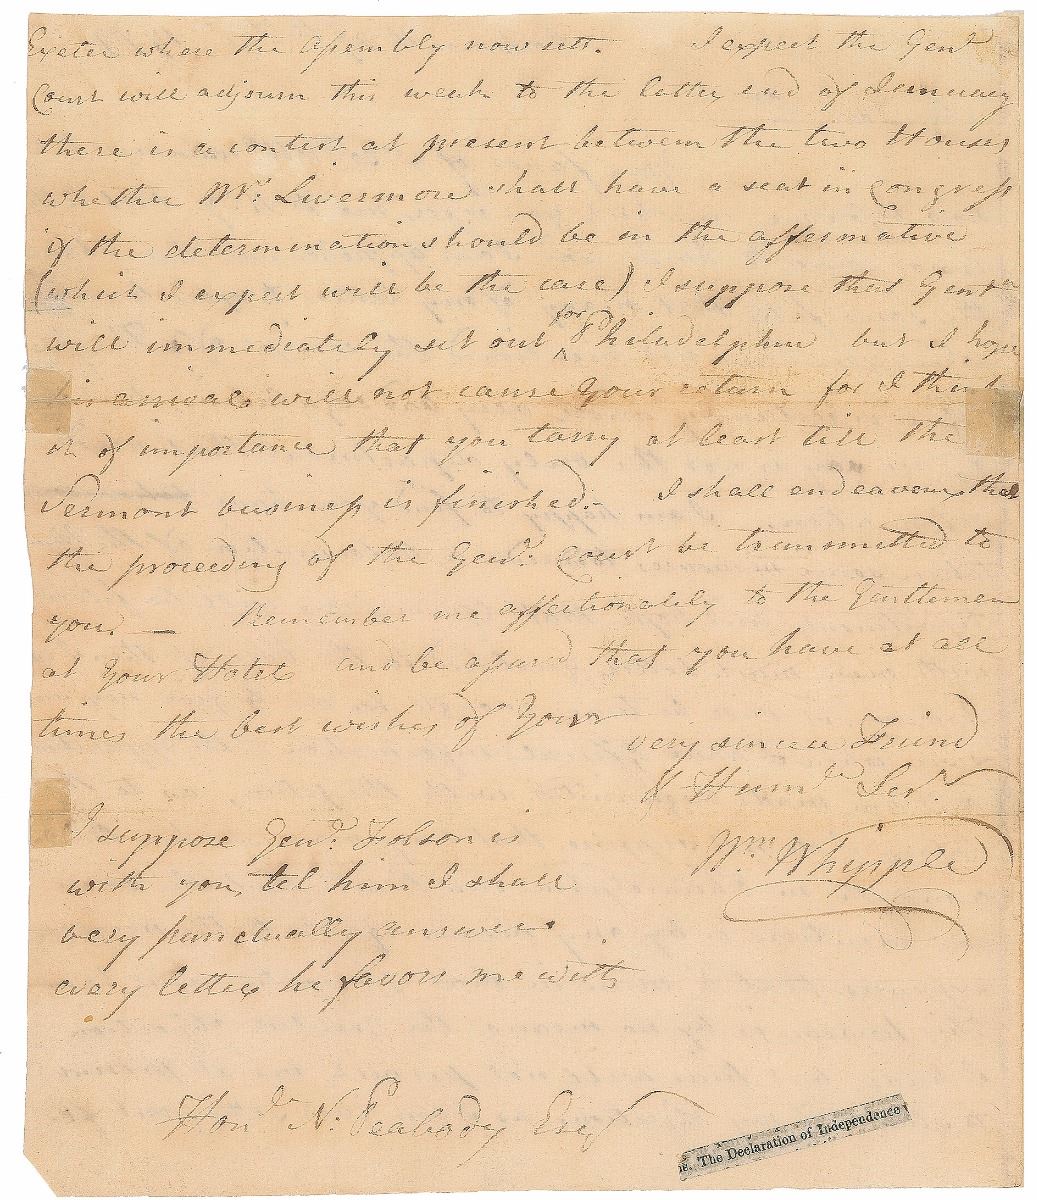 Exeter where the Assembly now sets. I expect the Genl
Court will adjourn this week to the latter end of January
there is a contest at present between the two Houses
whether Mr. Livermore shall have a seat in Congress
if the determination should be in the affermative
(which I expect will be the case) I suppose that Gentn
will immediately set out for Philadelphia but I hope
his arrival will not cause your return for I think
it of importance that you tarry at least till the
Vermont business is finished.- I shall endeavour that
the proceeding of the Genl. Court be transmitted to
you. — Remember me affectionately to the Gentlemen
at your Hotel and be assured that you have at all
times the best wishes of Your
very sincere Friend
& Humle Servt.
Wm Whipple
I suppose Genl. Folson is
with you, tel him I shall
very punctually answer
every letter he favors me with
Honle N. Peabody Esqr
ne. The Declaration of Independence